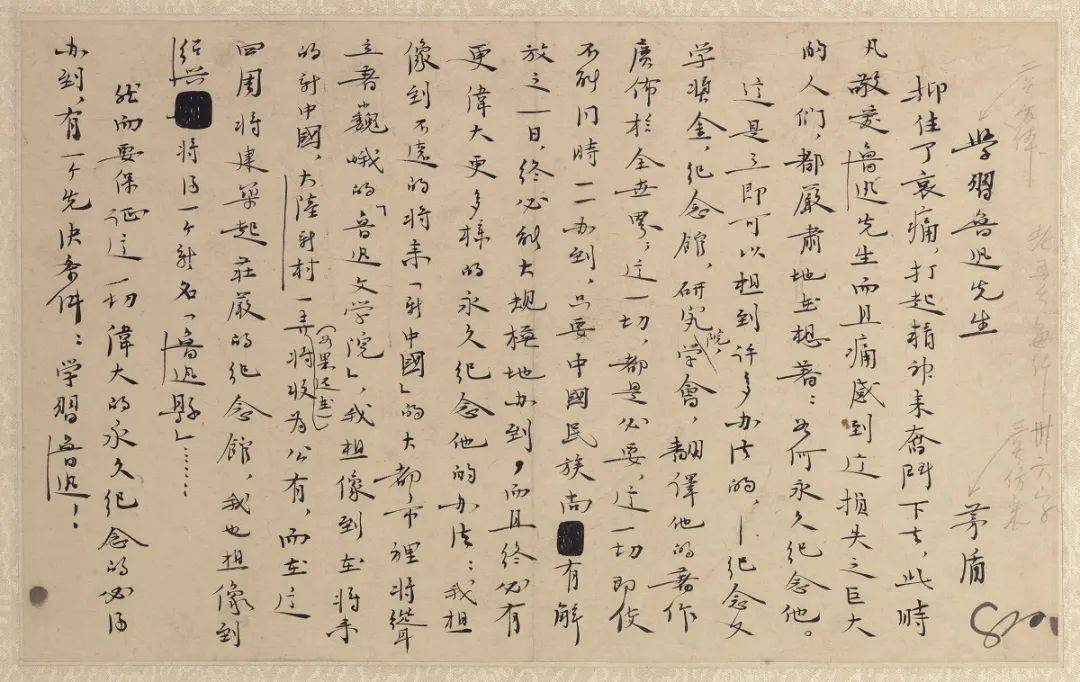 学習魯迅先生
茅盾
抑住了哀痛，打起精神来奮鬥下去，此時
凡敬愛魯迅先生而且痛感到这損失之巨大
的人们，都嚴肃地在想着：如何永久纪念他。
这是立即可以想到许多办法的，—纪念文
学奖金，纪念館，研究院，学會，翻譯他的著作
廣佈於全世界；这一切，都是必要，这一切即使
不能同時一一办到，只要中國民族尚有解
放之一日，终必能大规模地办到，而且终必有
更偉大更多樣的永久纪念他的办法：我想
像到不遠的将来「新中國」的大都市裡将聳
立着巍峨的「魯迅文学院」，我想像到在将来
的新中國，大陸新村一弄（如果还在）将收为公有，而在这
四周将建築起莊嚴的纪念館，我也想像到
绍兴将得一个新名「魯迅縣」……
然而要保证这一切偉大的永久纪念的必得
办到，有一个先决条件：学習魯迅！